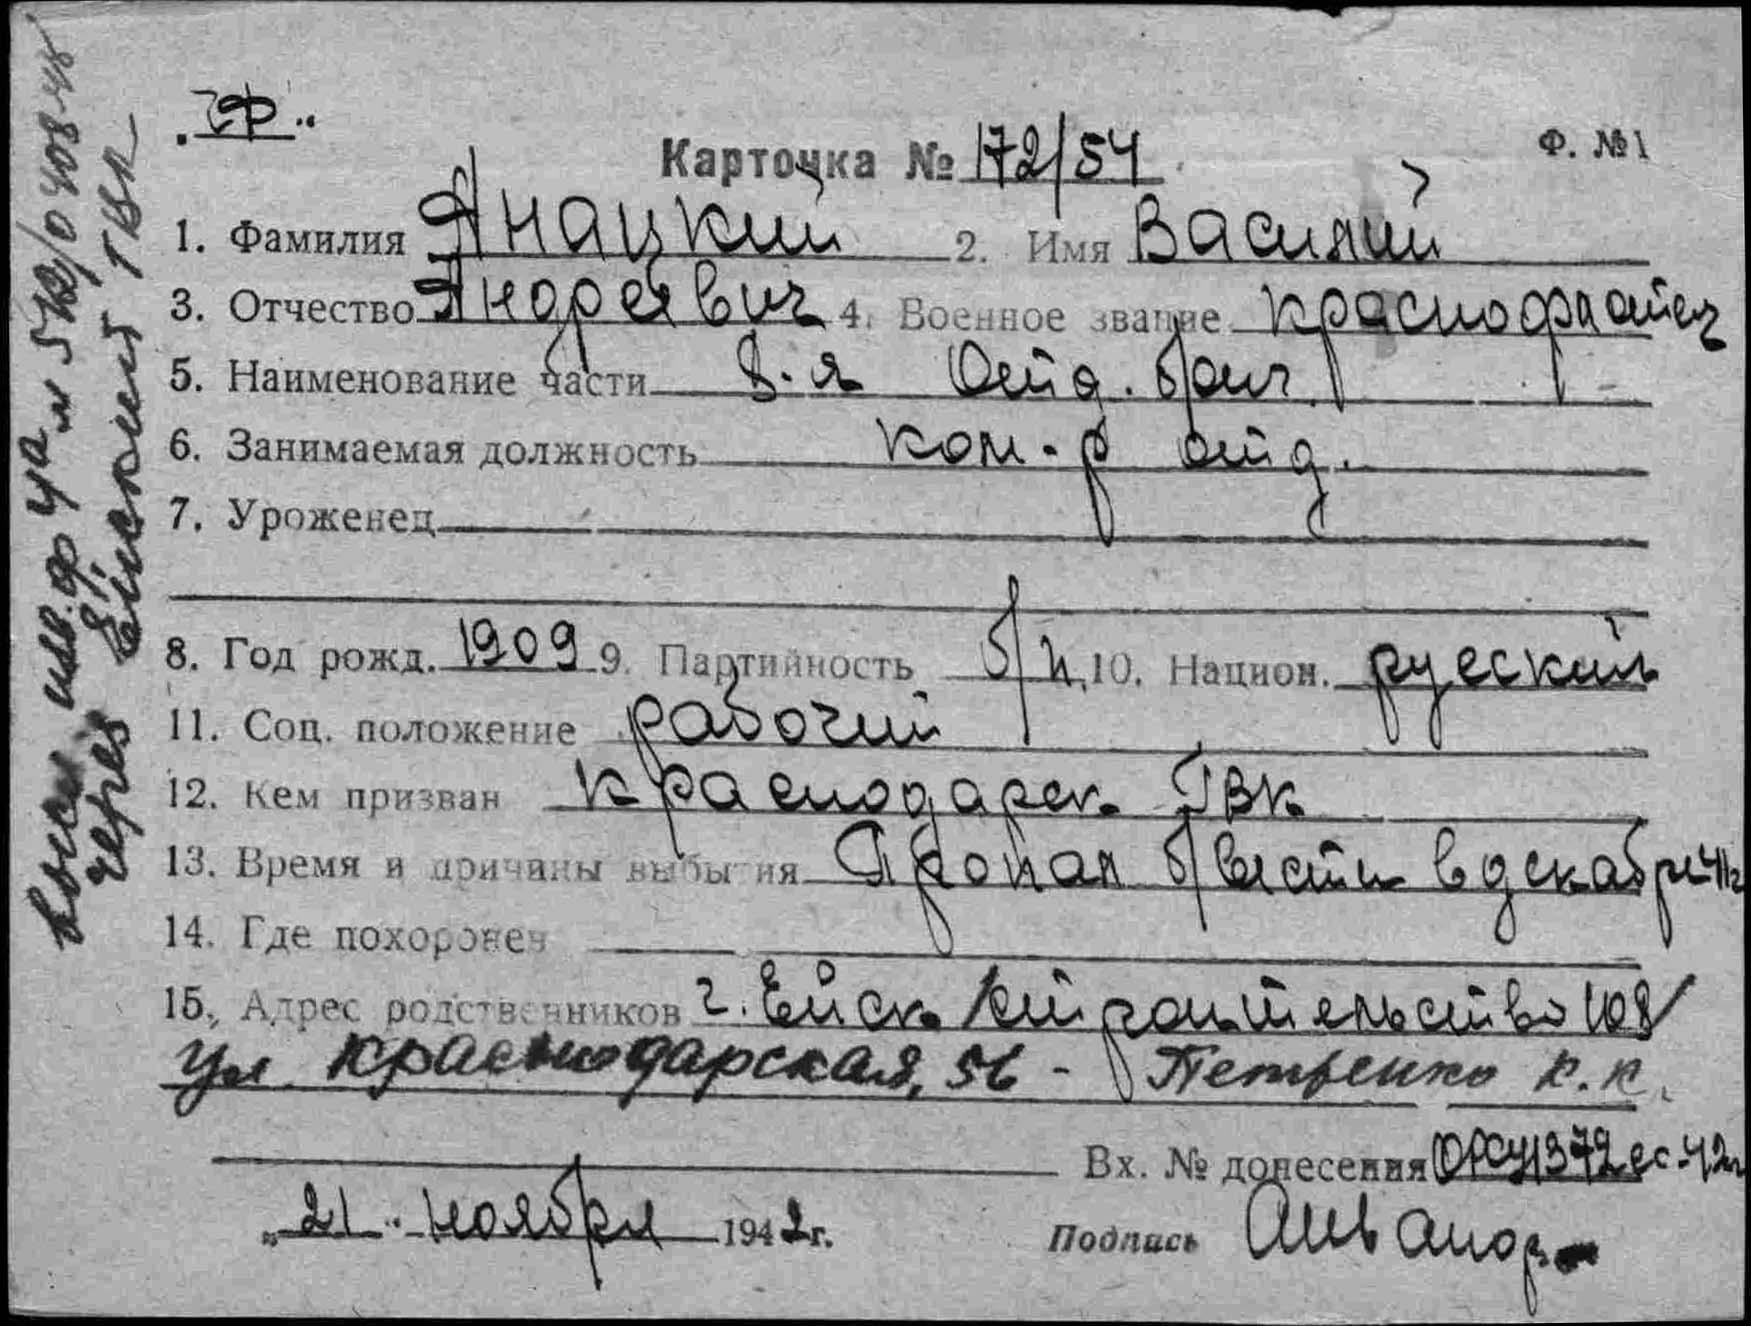 „ЧФ"
Карточка № 172/54
Ф. №1
1. Фамилия Янацкий 2. Имя Василий
3. Отчество Андреевич 4. Военное звание краснофлотец
5. Наименование части 8-я отд. бриг.
6. Занимаемая должность ком-р отд.
7. Уроженец
8. Год рожд. 1909 9. Партийность б/п. 10. Национ. русский
11. Соц. положение рабочий
12. Кем призван Краснодарск. ГВК
13. Время и причины выбытия Пропал б/вести в декабре 41г
14. Где похоронен
15. Адрес родственников г. Ейск 108
ул Краснодарская, 56 - Петренко К.К.
Вх. № донесения 1372 42г
„21" ноября 1942г.
Подпись
высл изв. ф 4а
через Ейский ГВК